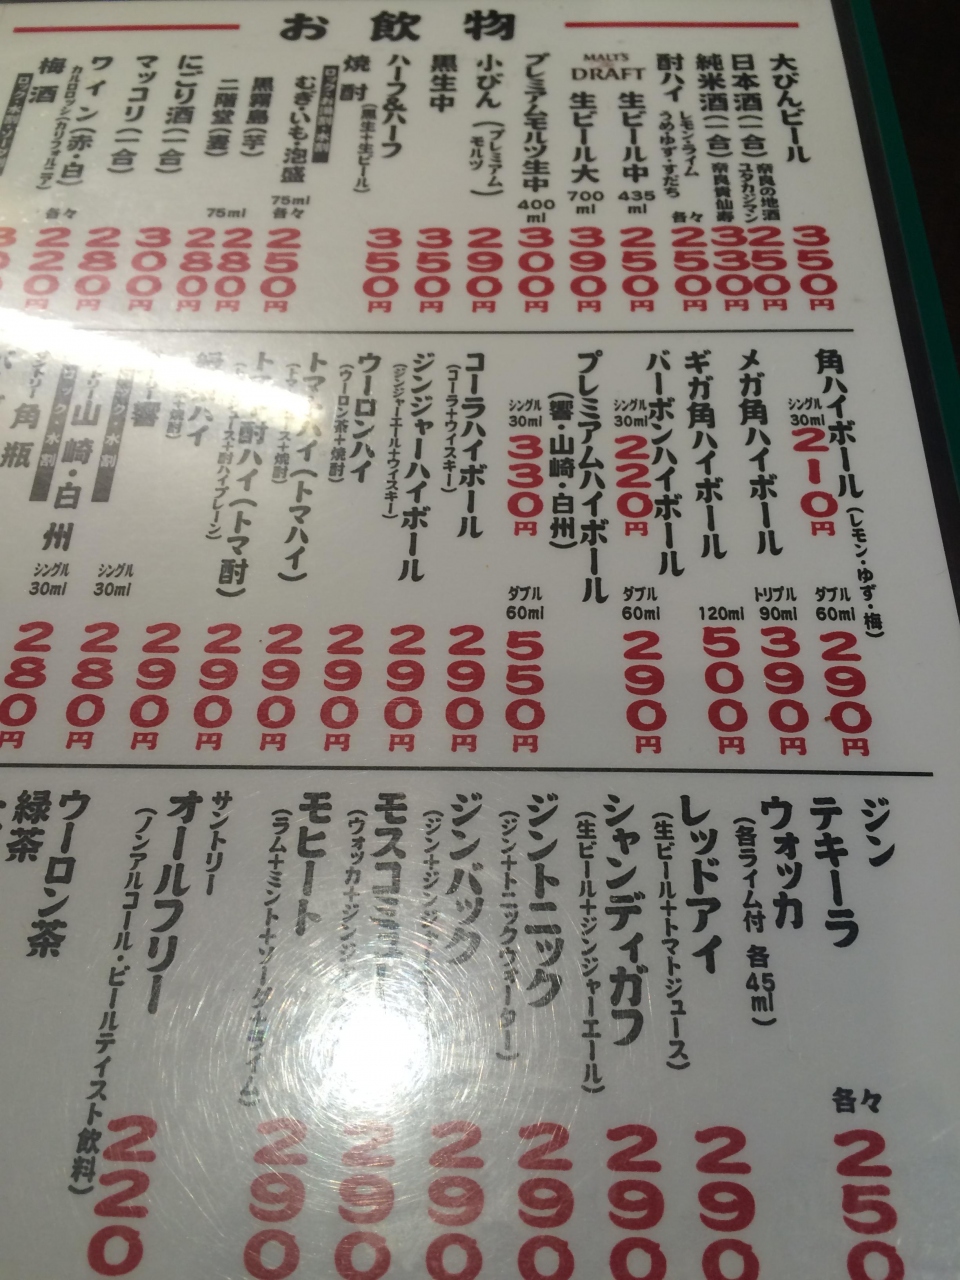 お飲物
大びんビール 350円
日本酒(一合) 奈良の地酒 ユタカジマン 250円
純米酒(一合) 奈良貴仙寿 330円
酎ハイ レモン・ライム うめ・ゆず・すだち 各々 250円
MALT'S DRAFT
生ビール中 435ml 250円
生ビール大 700ml 390円
プレミアムモルツ生中 400ml 300円
小びん(プレミアムモルツ) 290円
黒生中 350円
ハーフ&ハーフ(黒生+生ビール) 350円
焼酎 ロック・お湯割・水割
むぎ・いも・泡盛 75ml 各々 250円
黒霧島(芋) 280円
二階堂(麦) 75ml 280円
にごり酒(一合)
マッコリ(一合) 300円
ワイン(赤・白) カルロロッシ(カリフォルニア) 各々 280円
梅酒 220円
角ハイボール(レモン・ゆず・梅) シングル 30ml 210円 ダブル 60ml 290円
メガ角ハイボール トリプル 90ml 390円
ギガ角ハイボール 120ml 500円
バーボンハイボール シングル 30ml 220円 ダブル 60ml 290円
プレミアムハイボール(響・山崎・白州) シングル 30ml 330円 ダブル 60ml 550円
コーラハイボール(コーラ+ウィスキー) 290円
ジンジャーハイボール(ジンジャーエール+ウィスキー) 290円
ウーロンハイ(ウーロン茶+焼酎) 290円
トマトハイ(トマハイ) 290円
酎ハイ(トマ酎) 290円
ハイ 290円
響 シングル 30ml 280円
山崎・白州 ロック・水割 シングル 30ml 280円
角瓶
ジン
テキーラ
ウォッカ
(各ライム付 各45ml)
各々 250
レッドアイ(生ビール+トマトジュース) 290
シャンディガフ(生ビール+ジンジャーエール) 290
ジントニック(ジン+トニックウォーター) 290
ジンバック 290
モスコミュール 290
モヒート(ラム+ミント+ソーダ+ライム) 290
サントリー
オールフリー(ノンアルコール・ビールテイスト飲料) 220
ウーロン茶
緑茶